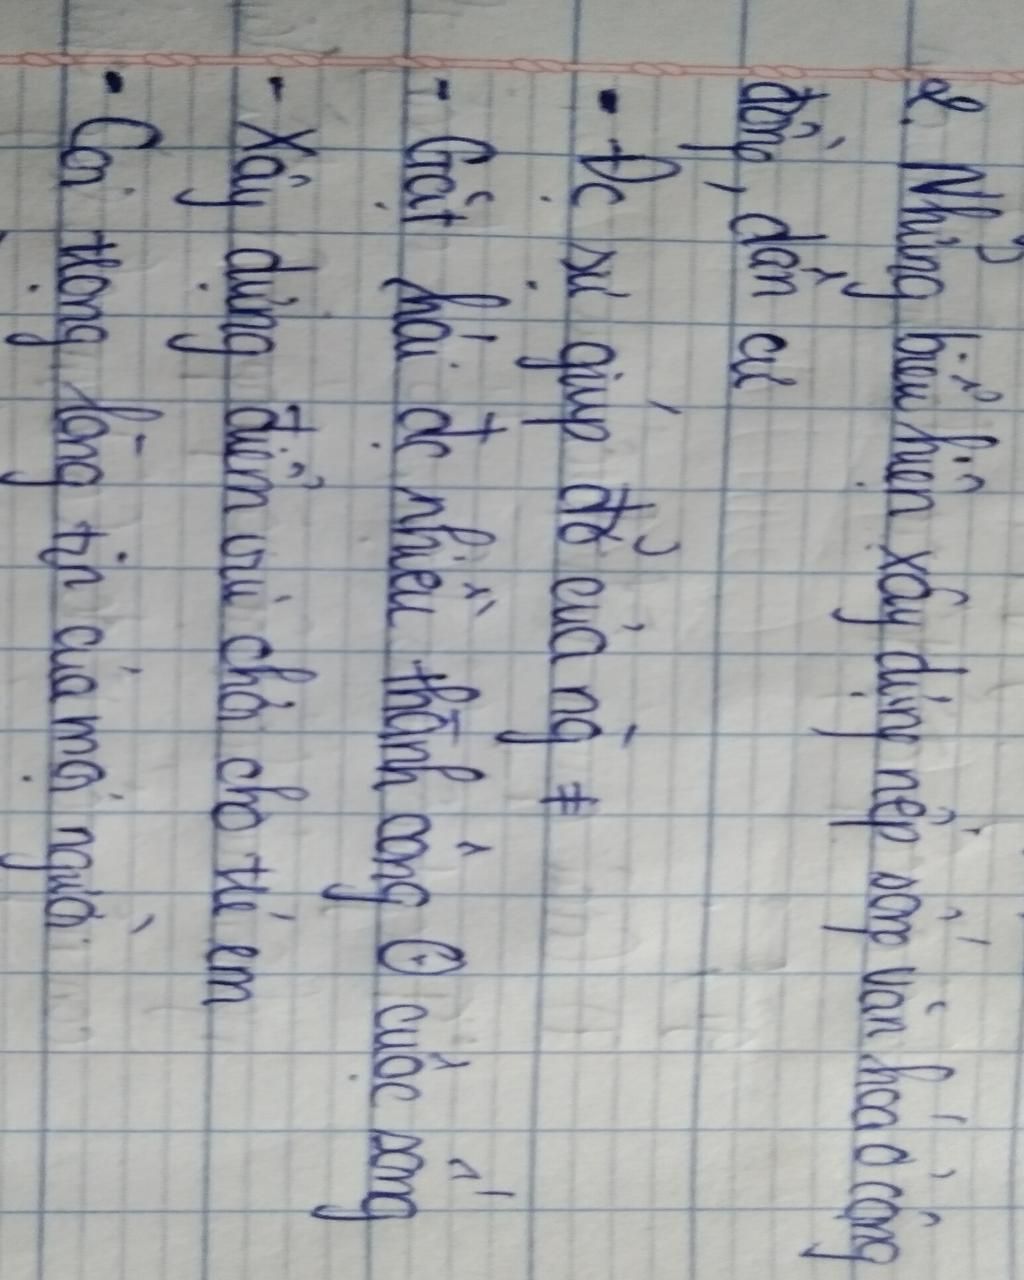 2. Những biểu hiện xây dựng nếp sống văn hoá ở cộng
đồng, dân cư
- Đc sự giúp đỡ của ng ≠
- Gặt hái đc nhiều thành công ⊙ cuộc sống
- Xây dựng điểm vui chơi cho trẻ em
- Coi trọng lòng tin của mọi người